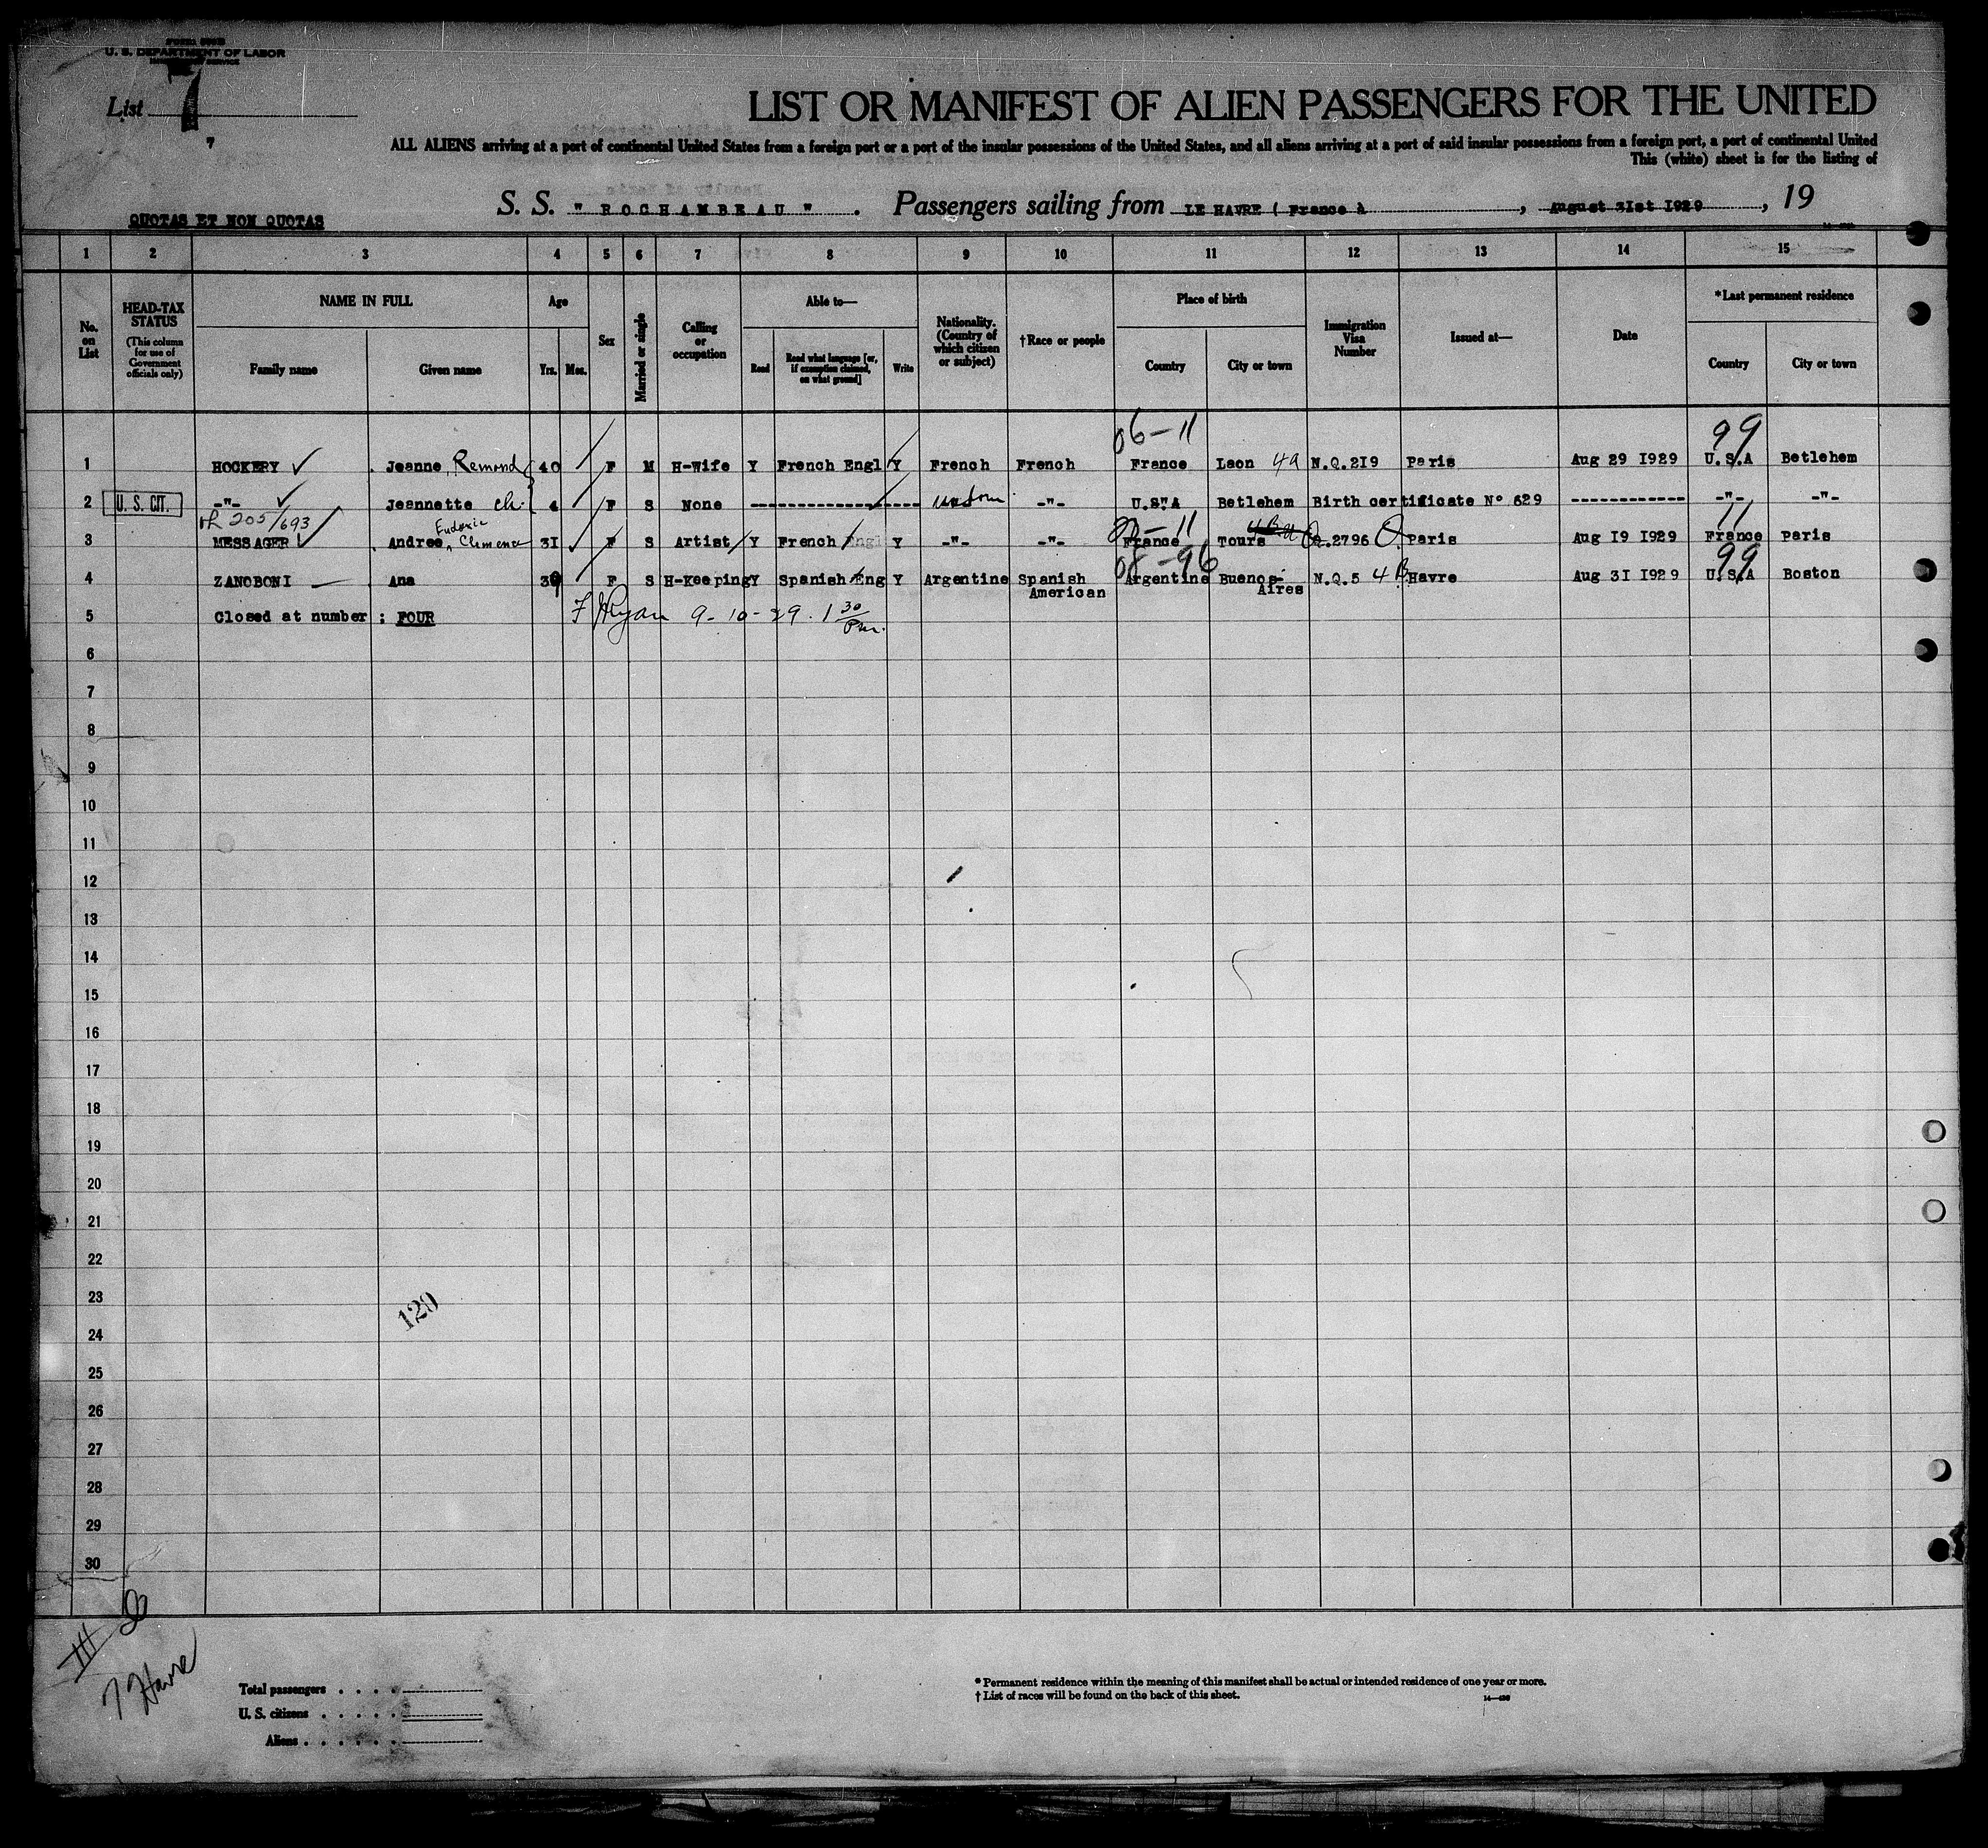 U. S. DEPARTMENT OF LABOR
List 7
7
LIST OR MANIFEST OF ALIEN PASSENGERS FOR THE UNITED
ALL ALIENS arriving at a port of continental United States from a foreign port or a port of the insular possessions of the United States, and all aliens arriving at a port of said insular possessions from a foreign port, a port of continental United
This (white) sheet is for the listing of
QUOTAS ET NON QUOTAS
S. S. " ROCHAMBEAU " . Passengers sailing from LE HAVRE ( France à , August 3Ist I929 , 19
1 2 3 4 5 6 7 8 9 10 11 12 13 14 15
No. on List
HEAD-TAX STATUS (This column for use of Government officials only)
NAME IN FULL Family name Given name
Age Yrs. Mos.
Sex
Married or single
Calling or occupation
Able to— Read Read what language [or, if exemption claimed, on what ground] Write
Nationality. (Country of which citizen or subject)
†Race or people
Place of birth Country City or town
Immigration Visa Number
Issued at—
Date
*Last permanent residence Country City or town
06-11 99
1 HOCKERY ✓ Jeanne, Remond 40 F M H-Wife Y French Engl Y French French France Laon 4a N.Q.2I9 Paris Aug 29 I929 U.S.A Betlehem
2 U. S. CIT. -"- ✓ Jeannette ch. 4 F S None -------------------- -"- U.S.A Betlehem Birth certificate N° 629 ------------ -"- -"-
205/693 Eudoxie 11 11
3 MESSAGER ✓ Andree, Clemence 3I F S Artist Y French Engl Y -"- -"- France Tours Q.2796 Paris Aug I9 I929 France Paris
08-96 99
4 ZANOBONI Ana 39 F S H-Keeping Y Spanish Eng Y Argentine Spanish American Argentine Buenos-Aires N.Q.5 4B Havre Aug 3I I929 U.S.A Boston
5 Closed at number : FOUR F Ryan 9-10-29. 1 30 Pm.
6
7
8
9
10
11
12
13
14
15
16
17
18
19
20
21
22
23
120
24
25
26
27
28
29
30
III
7 Havre
Total passengers . . . .
U. S. citizens . . . . .
Aliens . . . . . .
* Permanent residence within the meaning of this manifest shall be actual or intended residence of one year or more.
† List of races will be found on the back of this sheet.